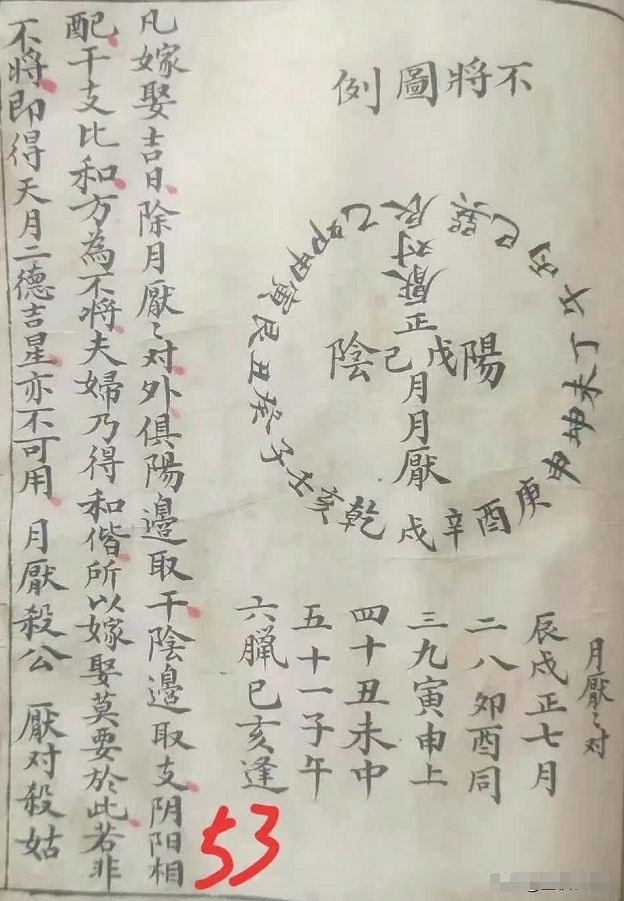 不將圖例
辰巽巳丙午丁未坤申庚酉辛戌乾亥壬子癸丑艮寅甲卯乙
厭对
正月月厭
陽戊己陰
月厭〻对
辰戌正七月
二八卯酉同
三九寅申上
四十丑未中
五十一子午
六臘巳亥逢
凡嫁娶吉日除月厭〻对外俱陽邊取干陰邊取支阴阳相
配干支比和方為不將夫婦乃得和偕所以嫁娶莫要於此若非
不將即得天月二德吉星亦不可用 月厭殺公 厭对殺姑
53